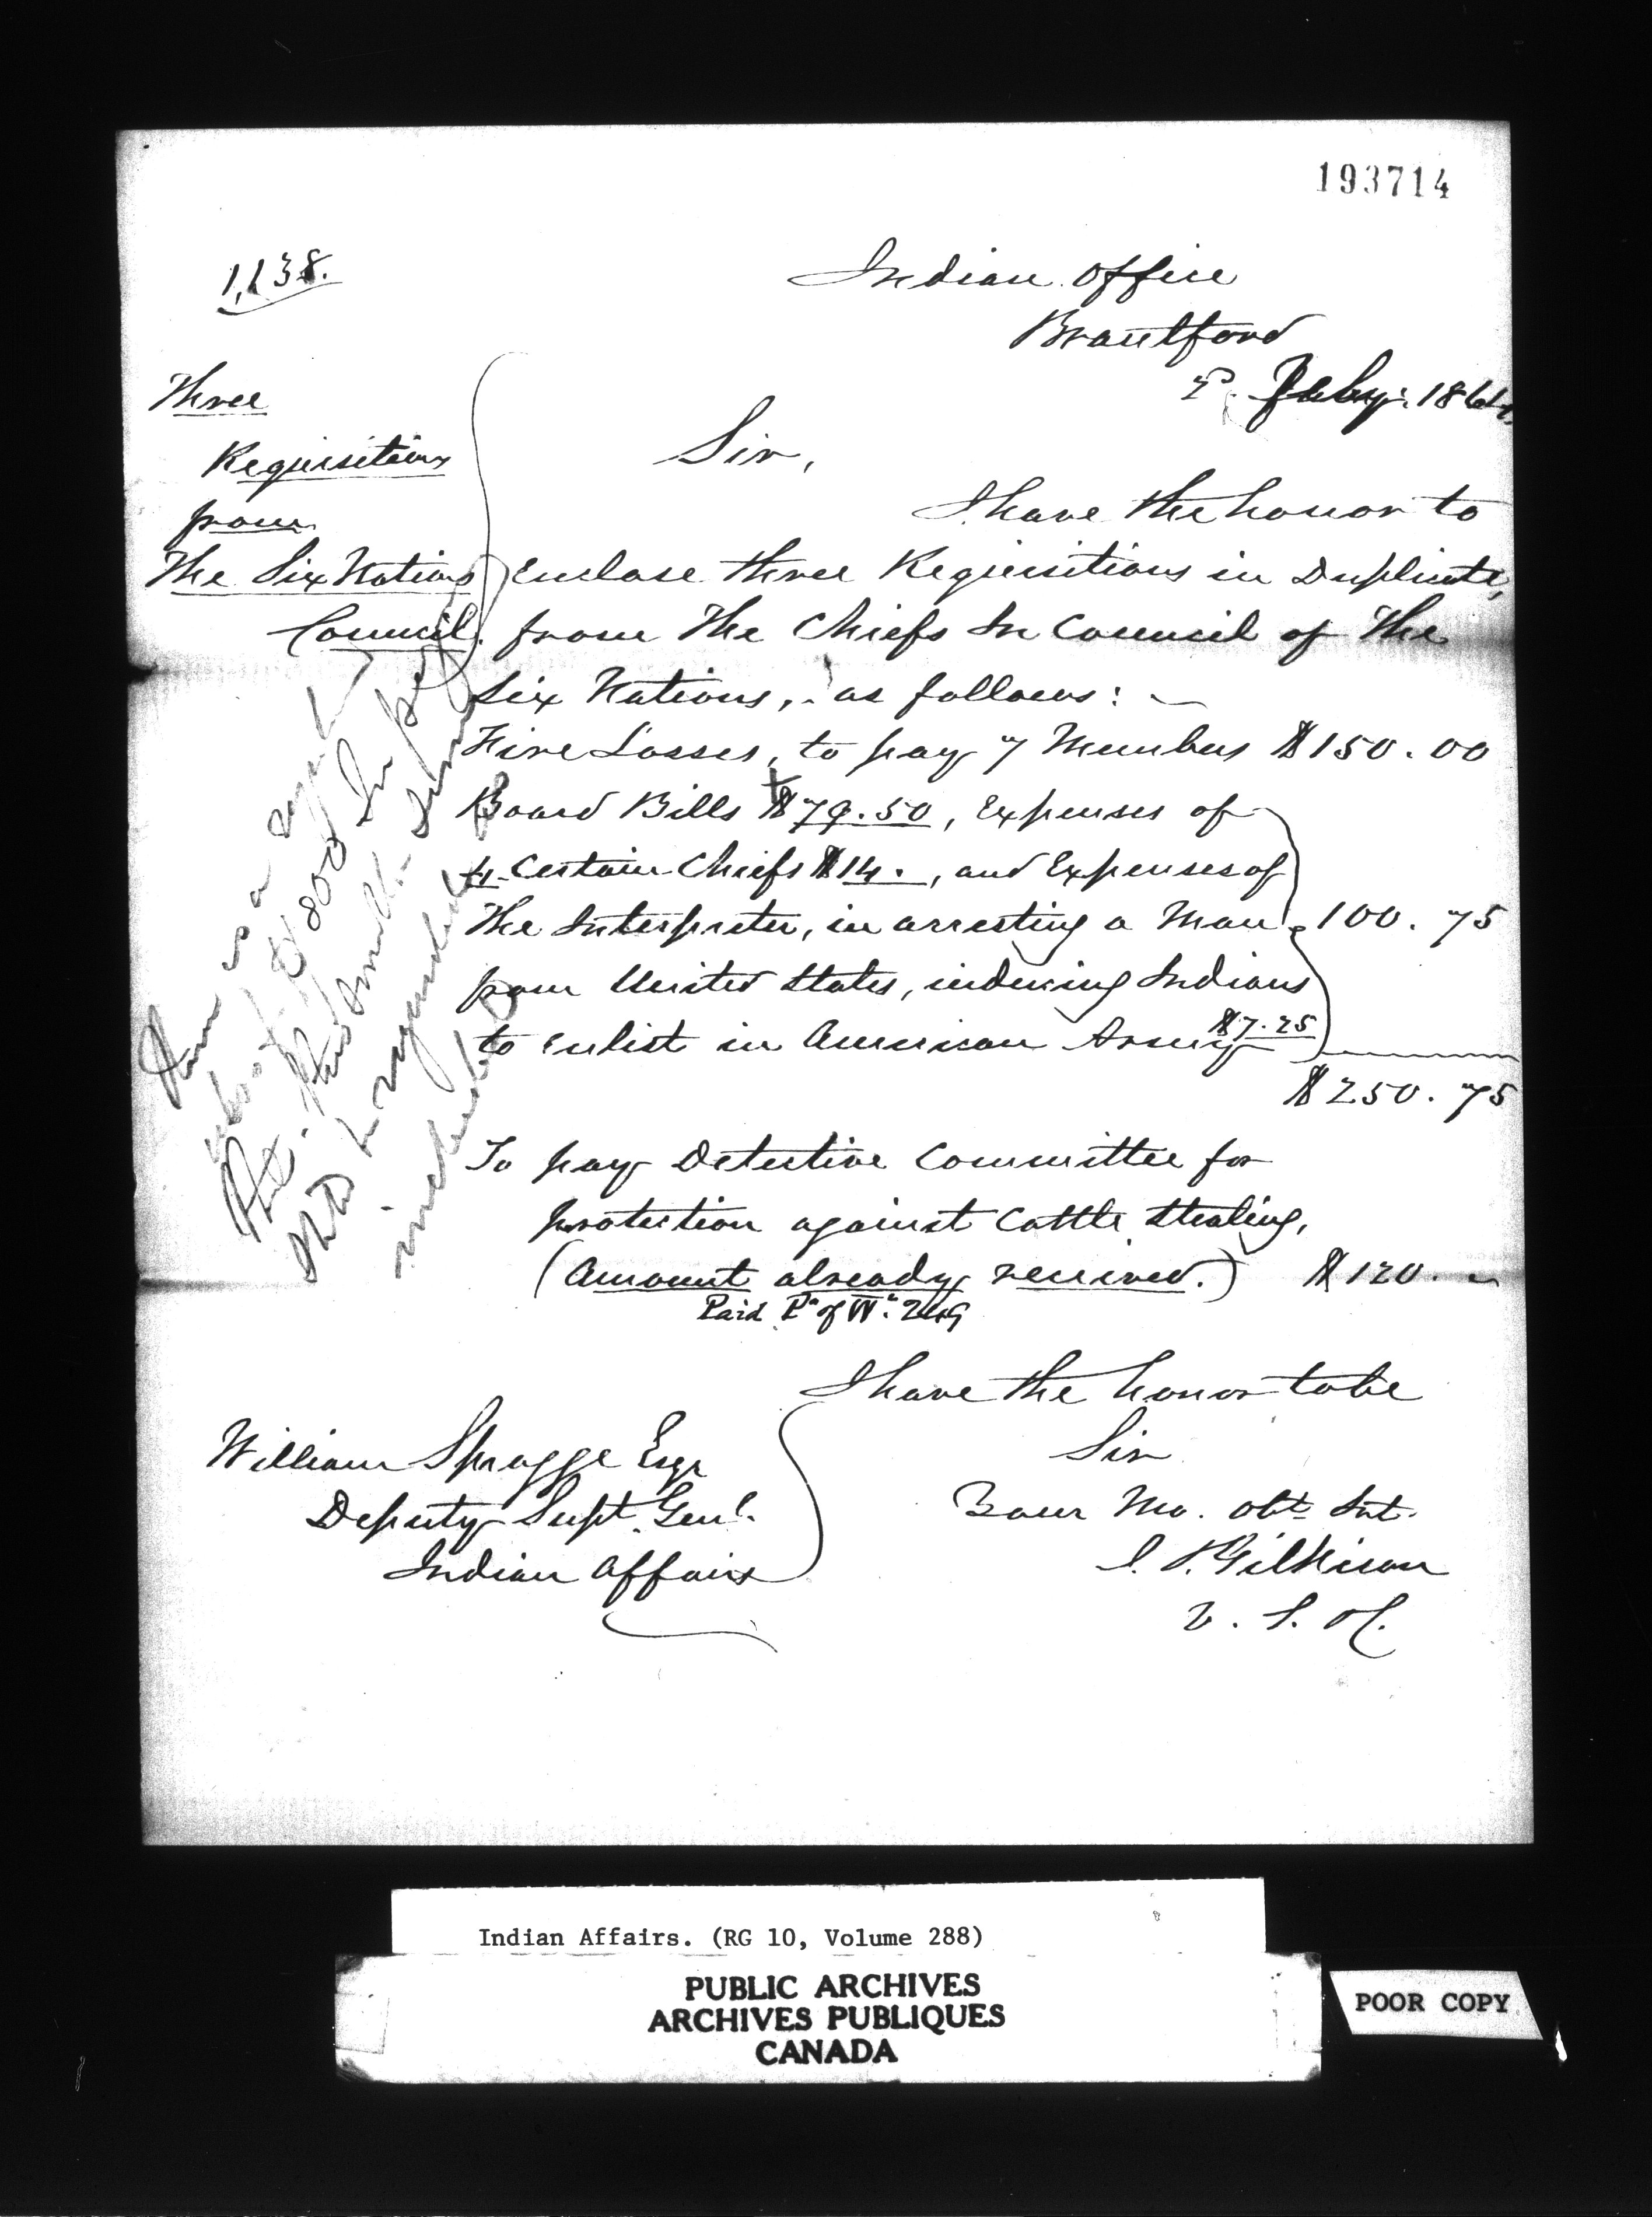 193714
1,138.
Indian Office
Brantford
Feby. 1864
Three
Requisitions
from
The Six Nations
Council.
Sir,
I have the honor to
Enclose three Requisitions in Duplicate,
from The Chiefs In Council of The
Six Nations, as follows:
Fire Losses, to pay 7 Members $150.00
Board Bills $79.50, Expenses of
4 Certain Chiefs $14., and Expenses of
The Interpreter, in arresting a Man 100.75
from United States, inducing Indians
to enlist in American Army $7.25
$250.75
To pay Detective Committee for
protection against Cattle Stealing,
(Amount already received.) $120.
Paid
I have the honor to be
Sir
Your Mo. Obt. Svt.
J. T. Gilkison
V. S. &c.
William Spragge Esqr
Deputy Supt. Genl.
Indian Affairs
There is a
$800 in
this
to be
included
Indian Affairs. (RG 10, Volume 288)
PUBLIC ARCHIVES
ARCHIVES PUBLIQUES
CANADA
POOR COPY